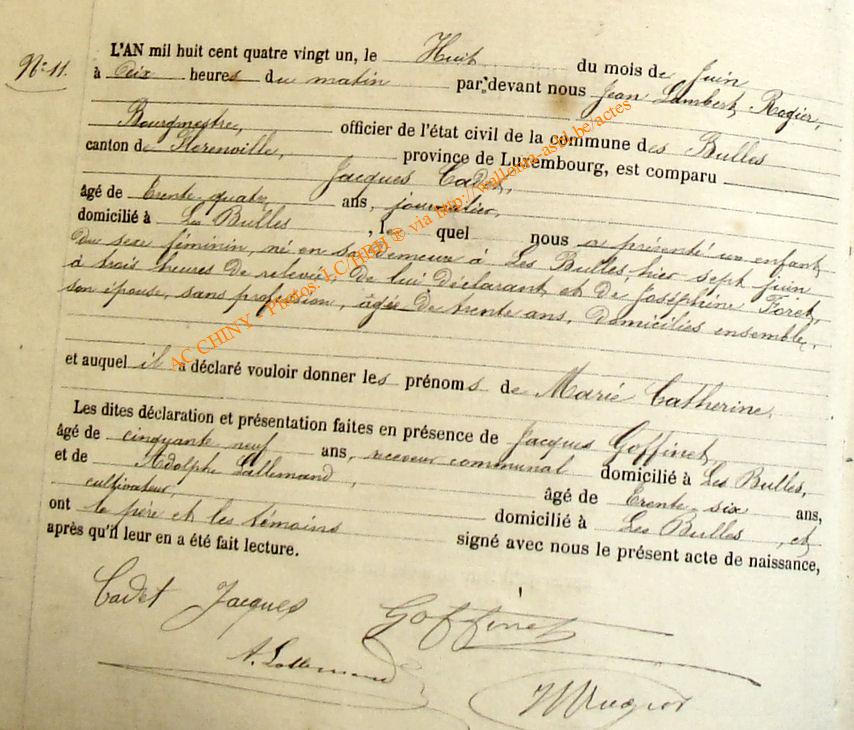 N° 11.
L'AN mil huit cent quatre vingt un, le Huit du mois de Juin
à dix heures du matin par devant nous Jean Lambert Rogier,
Bourgmestre, officier de l'état civil de la commune des Bulles
canton de Florenville, province de Luxembourg, est comparu
Jacques Cadet,
âgé de trente quatre ans, journalier,
domicilié à Les Bulles, lequel nous a présenté un enfant
du sexe féminin, né en sa demeure à Les Bulles, hier sept juin
à trois heures de relevée, de lui déclarant, et de Joséphine Foret,
son épouse, sans profession, âgée de trente ans, domiciliés ensemble,
et auquel il a déclaré vouloir donner les prénoms de Marie Catherine.
Les dites déclaration et présentation faites en présence de Jacques Goffinet,
âgé de cinquante neuf ans, receveur communal domicilié à Les Bulles,
et de Adolphe Lallemand, âgé de trente six ans,
cultivateur, domicilié à Les Bulles, et
ont le père et les témoins signé avec nous le présent acte de naissance,
après qu'il leur en a été fait lecture.
Cadet Jacques Goffinet
A. Lallemand
AC CHINY - Photos: LC/HBH ® via http://wallonia-asbl.be/actes